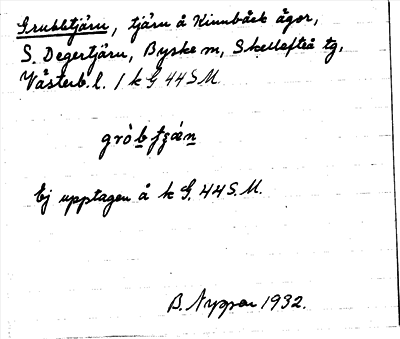 Grubbtjärn, tjärn å Kinnbäck ägor,
S. Degertjärn, Byske sn, Skellefteå tg,
Västerb. l. / k G 44 S M.
gròb tʒæ̀n
Ej upptagen å k G. 44 S. M.
B. Nyman 1932.